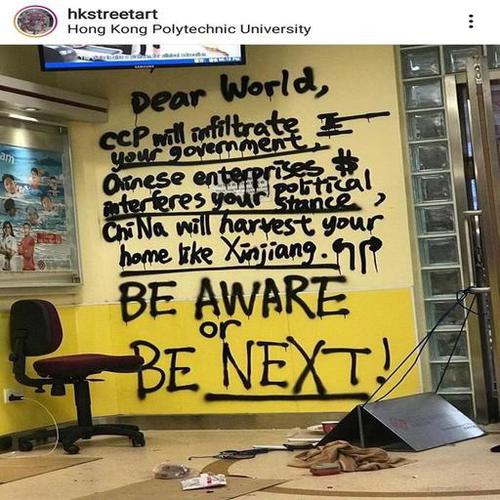 hkstreetart
Hong Kong Polytechnic University
SAMSUNG
Dear World,
CCP will infiltrate
your government,
Chinese enterprises $
interferes your political
stance,
China will harvest your
home like Xinjiang.
BE AWARE
or
BE NEXT!